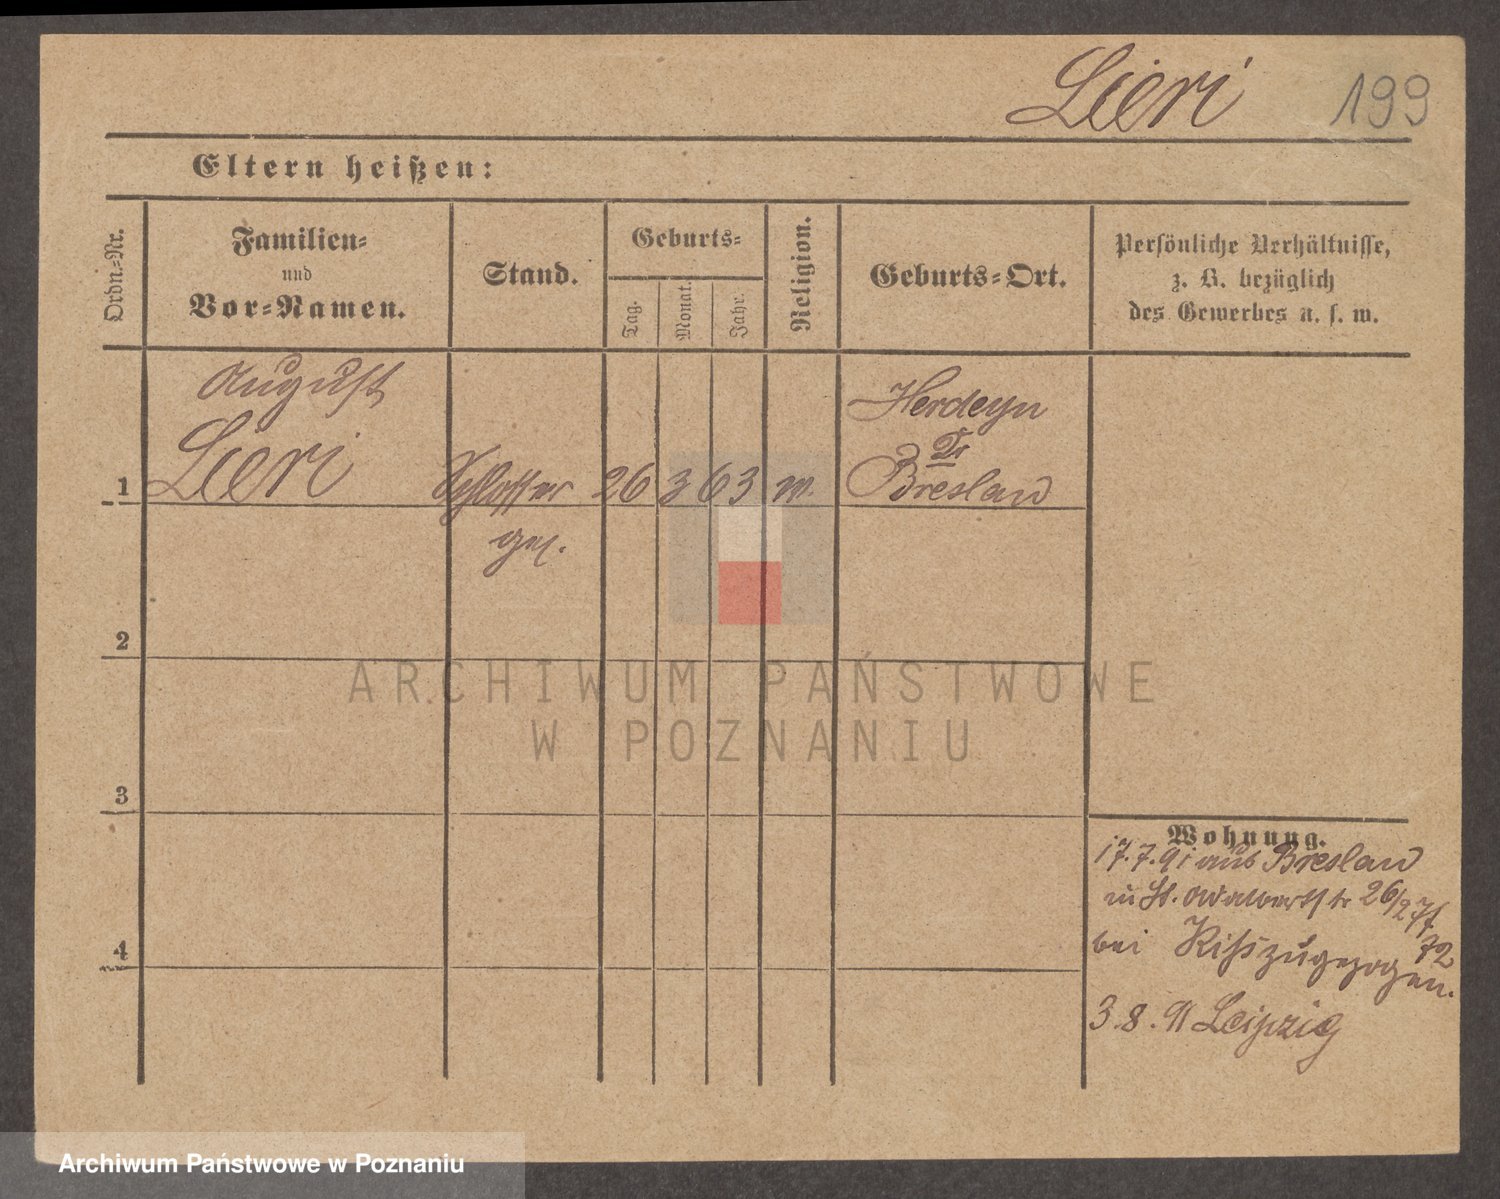 Lieri 199
Eltern heißen:
Ordn.-Nr.
Familien-
und
Vor-Namen.
Stand.
Geburts-
Tag.
Monat.
Jahr.
Religion.
Geburts-Ort.
Persönliche Verhältnisse,
z. B. bezüglich
des Gewerbes u. s. w.
August
Lieri
1
Schlosser
ges.
26 3 63
Herdeyn
Kr
Breslau
2
3
4
Wohnung.
17.7.91 aus Breslau
in St. Adalbertstr 26/27
bei zugezogen.
3.8.91 Leipzig
ARCHIWUM PAŃSTWOWE
W POZNANIU
Archiwum Państwowe w Poznaniu